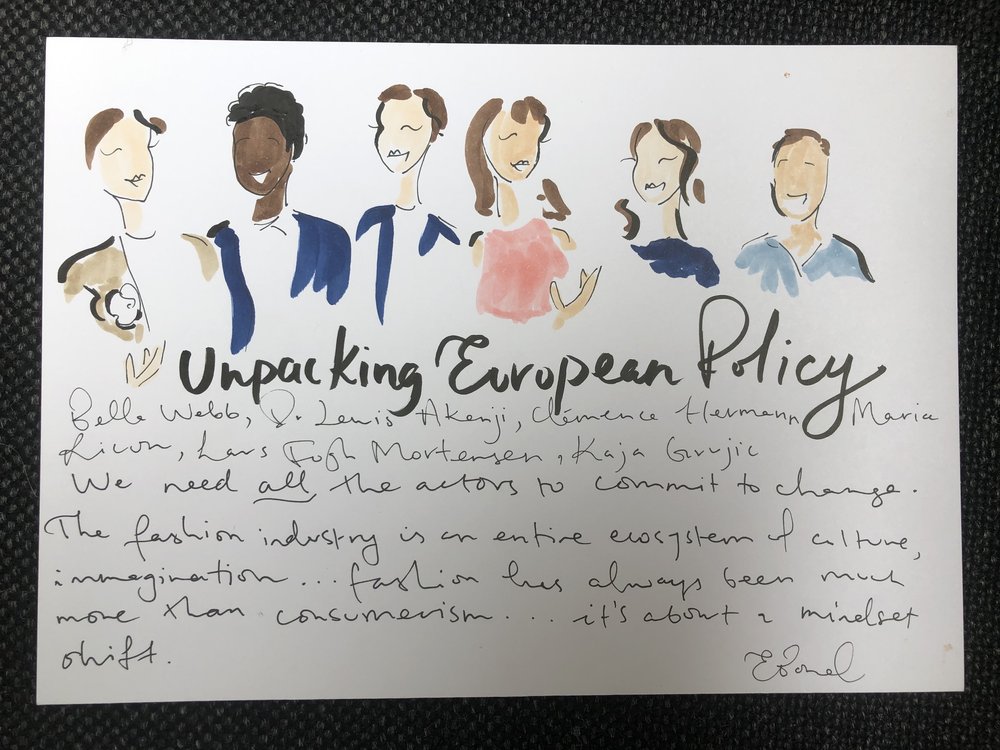 Unpacking European Policy
Belle Webb, Dr. Lewis Akenji, Clémence Hermann Maria
Ricon, Lars Fogh Mortensen, Kaja Grujic
We need all the actors to commit to change.
The fashion industry is an entire ecosystem of culture,
immagination... fashion has always been much
more than consumerism.... it's about a mindset
shift.